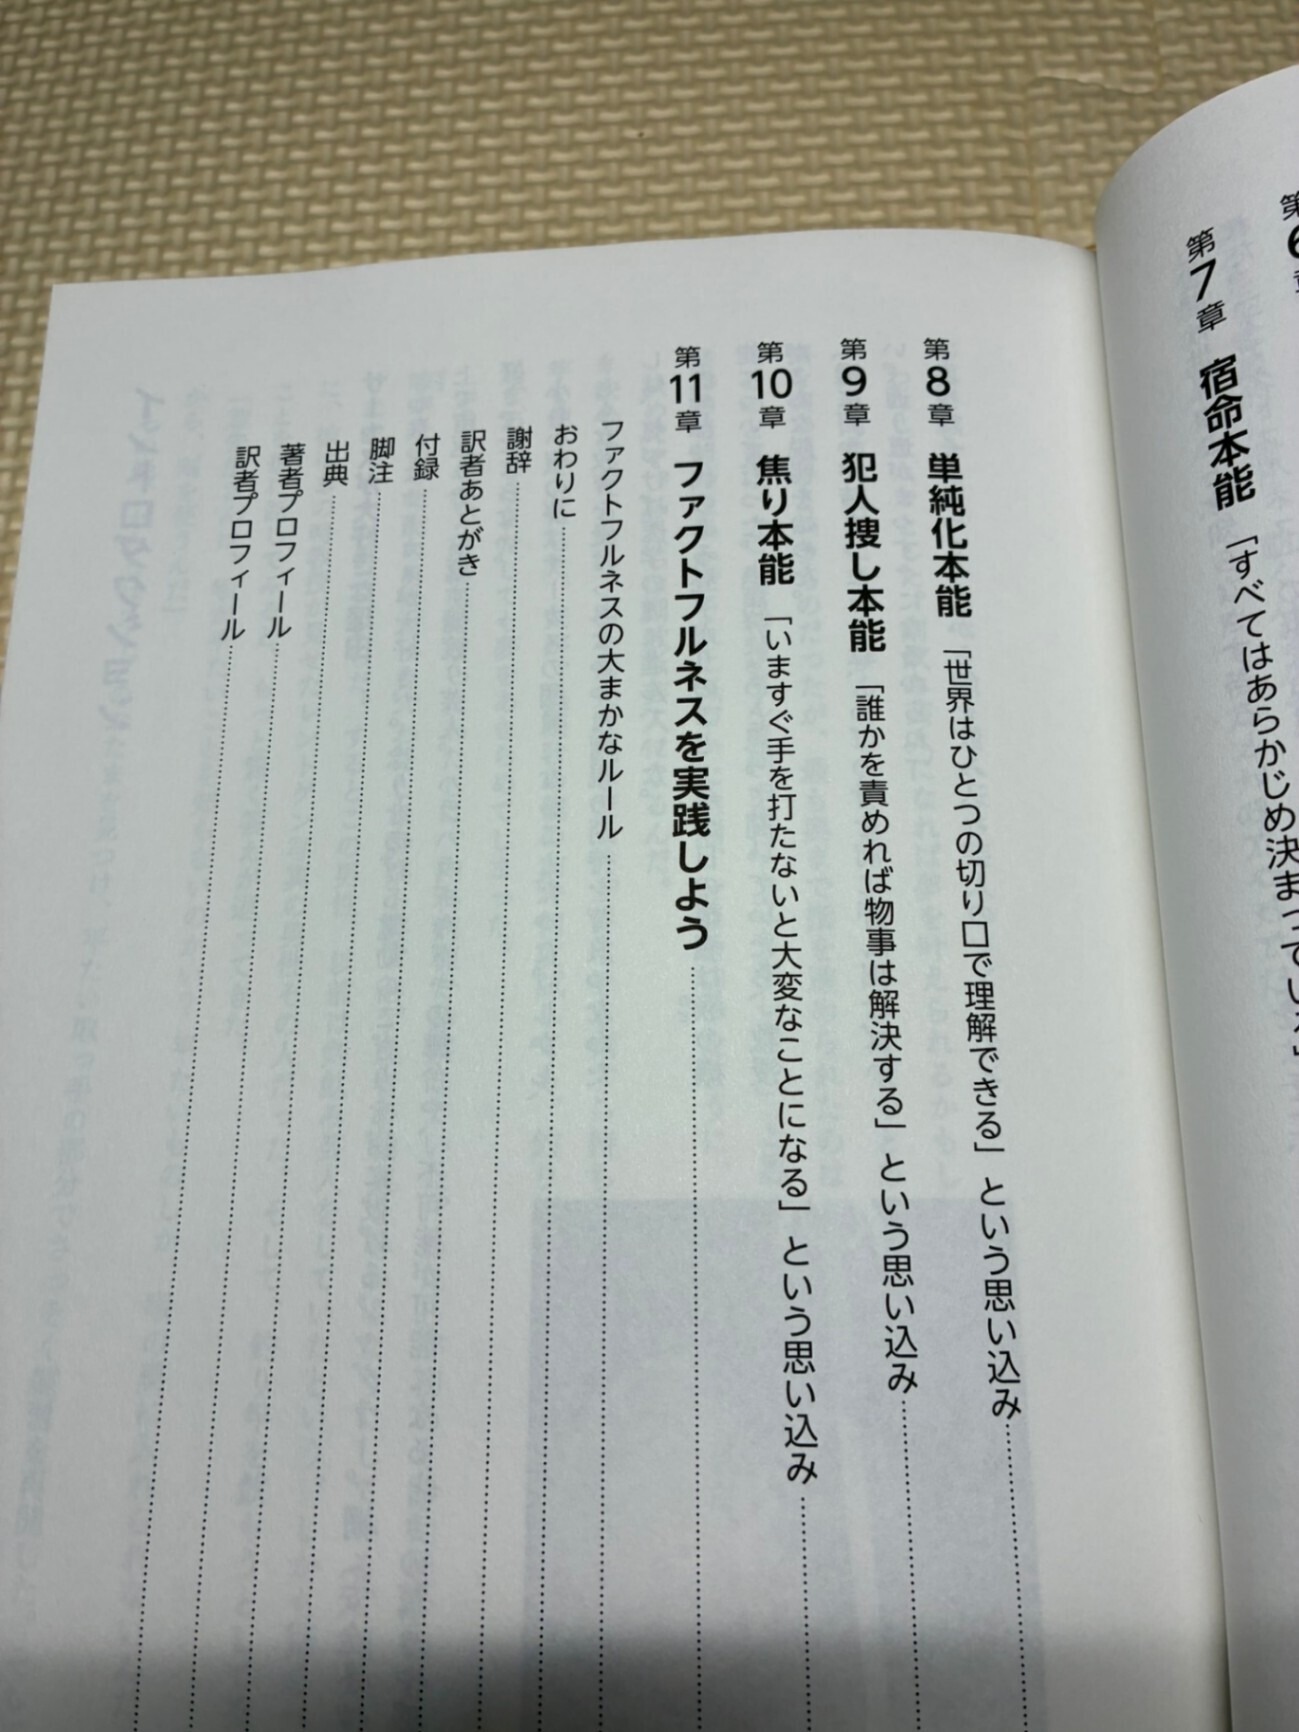 第6章
第7章 宿命本能 「すべてはあらかじめ決まっている」
第8章 単純化本能 「世界はひとつの切り口で理解できる」という思い込み
第9章 犯人捜し本能 「誰かを責めれば物事は解決する」という思い込み
第10章 焦り本能 「いますぐ手を打たないと大変なことになる」という思い込み
第11章 ファクトフルネスを実践しよう
ファクトフルネスの大まかなルール
おわりに
謝辞
訳者あとがき
付録
脚注
出典
著者プロフィール
訳者プロフィール